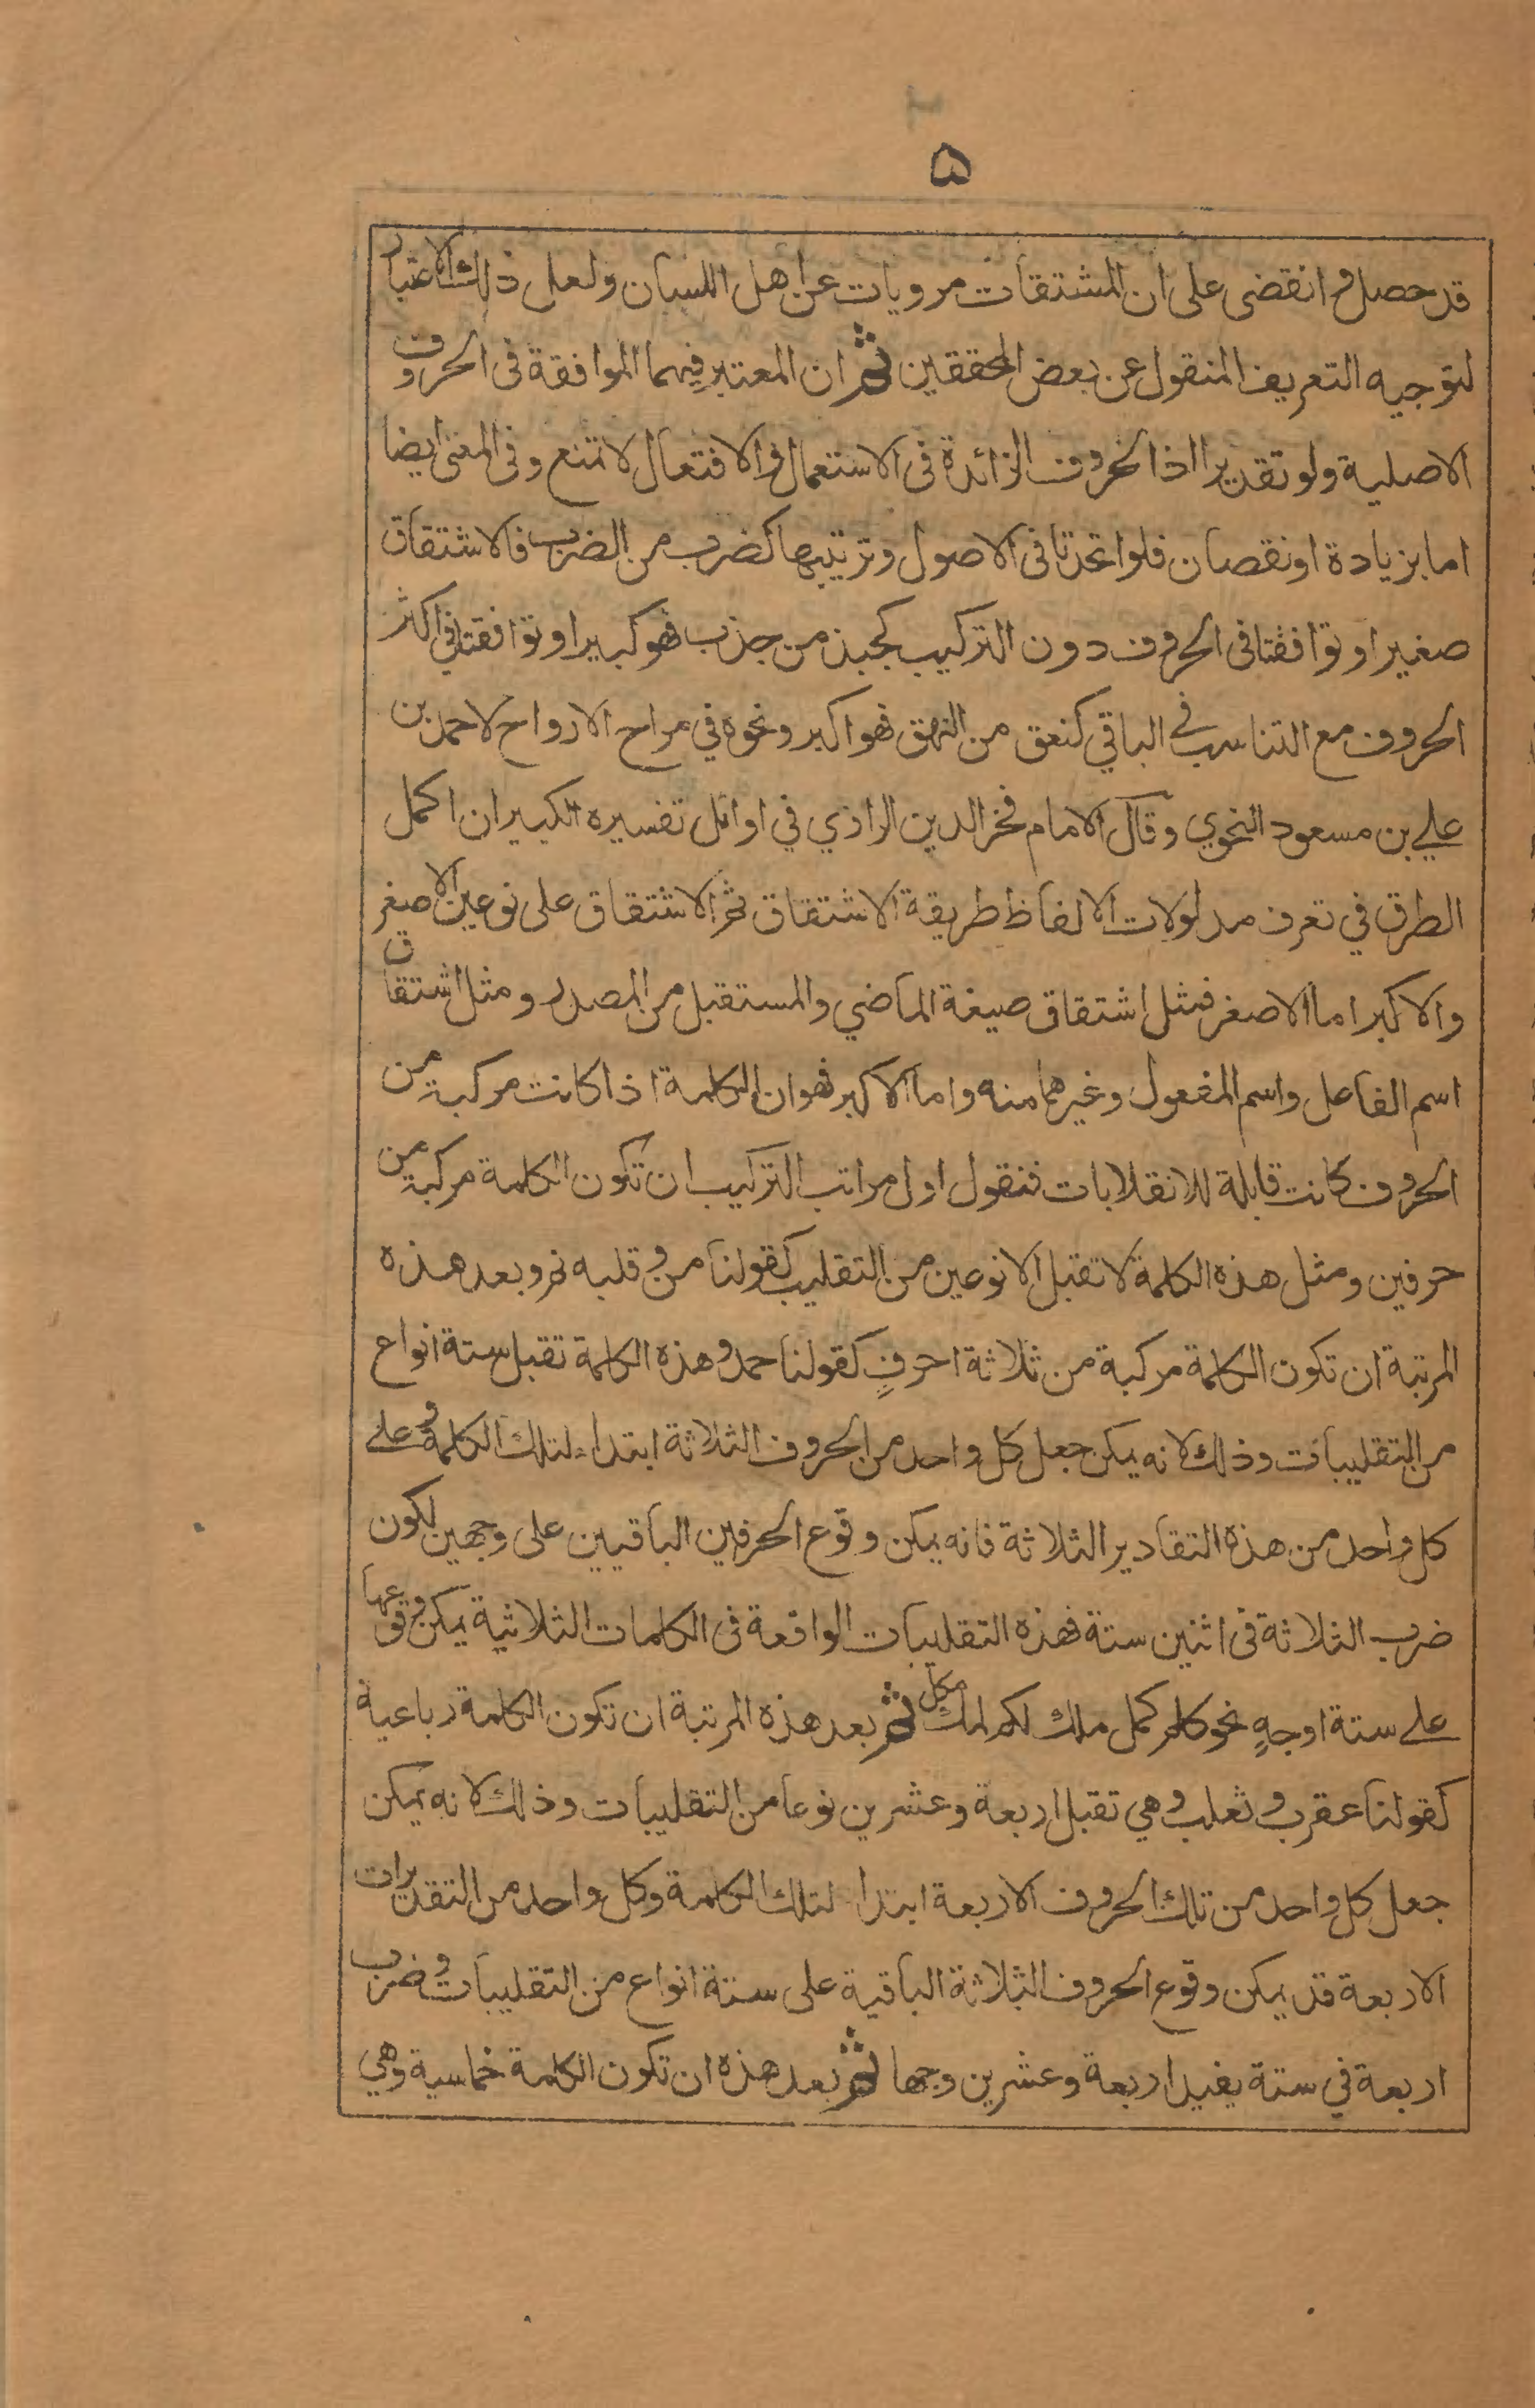 ۵
قد حصل وانقضى على ان المشتقات مرويات عن اهل اللسان ولعل ذلك الاعتبار
لتوجيه التعريف المنقول عن بعض المحققين ثم ان المعتبر فيهما الموافقة فى الحروف
الاصلية ولو تقديرا اذ الحروف الزائدة فى الاستعمال والافتعال لا تمنع وفى المعنى ايضا
اما بزيادة او نقصان فلو اتحدتا فى الاصول وترتيبها كضرب من الضرب فالاشتقاق
صغير او توافقتا فى الحروف دون التركيب كجبذ من جذب فهو كبير او توافقتا في اكثر
الحروف مع التناسب في الباقي كنعق من النهق فهو اكبر ونحوه في مراح الارواح لاحمد بن
علي بن مسعود النحوي وقال الامام فخر الدين الرازي في اوائل تفسيره الكبير ان اكمل
الطرق في تعرف مدلولات الالفاظ طريقة الاشتقاق ثم الاشتقاق على نوعين الاصغر
والاكبر اما الاصغر فمثل اشتقاق صيغة الماضي والمستقبل من المصدر ومثل اشتقاق
اسم الفاعل واسم المفعول وغيرهما منه واما الاكبر فهو ان الكلمة اذا كانت مركبة من
الحروف كانت قابلة للانقلابات فنقول اول مراتب التركيب ان تكون الكلمة مركبة من
حرفين ومثل هذه الكلمة لا تقبل الا نوعين من التقليب كقولنا من وقلبه نم وبعد هذه
المرتبة ان تكون الكلمة مركبة من ثلاثة احرفٍ كقولنا حمد وهذه الكلمة تقبل ستة انواع
من التقليبات وذلك لانه يمكن جعل كل واحد من الحروف الثلاثة ابتداء لتلك الكلمة وعلے
كل واحد من هذه التقادير الثلاثة فانه يمكن وقوع الحرفين الباقيين على وجهين لكون
ضرب الثلاثة فى اثنين ستة فهذه التقليبات الواقعة فى الكلمات الثلاثية يمكن وقوعها
علے ستة اوجهٍ نحو كلم كمل ملك لكم لمك مكل ثم بعد هذه المرتبة ان تكون الكلمة رباعية
كقولنا عقرب وثعلب وهي تقبل اربعة وعشرين نوعا من التقليبات وذلك لانه يمكن
جعل كل واحد من تلك الحروف الاربعة ابتداء لتلك الكلمة وكل واحد من التقديرات
الاربعة قد يمكن وقوع الحروف الثلاثة الباقية على ستة انواع من التقليبات وضرب
اربعة في ستة يفيد اربعة وعشرين وجها ثم بعد هذه ان تكون الكلمة خماسية وهي